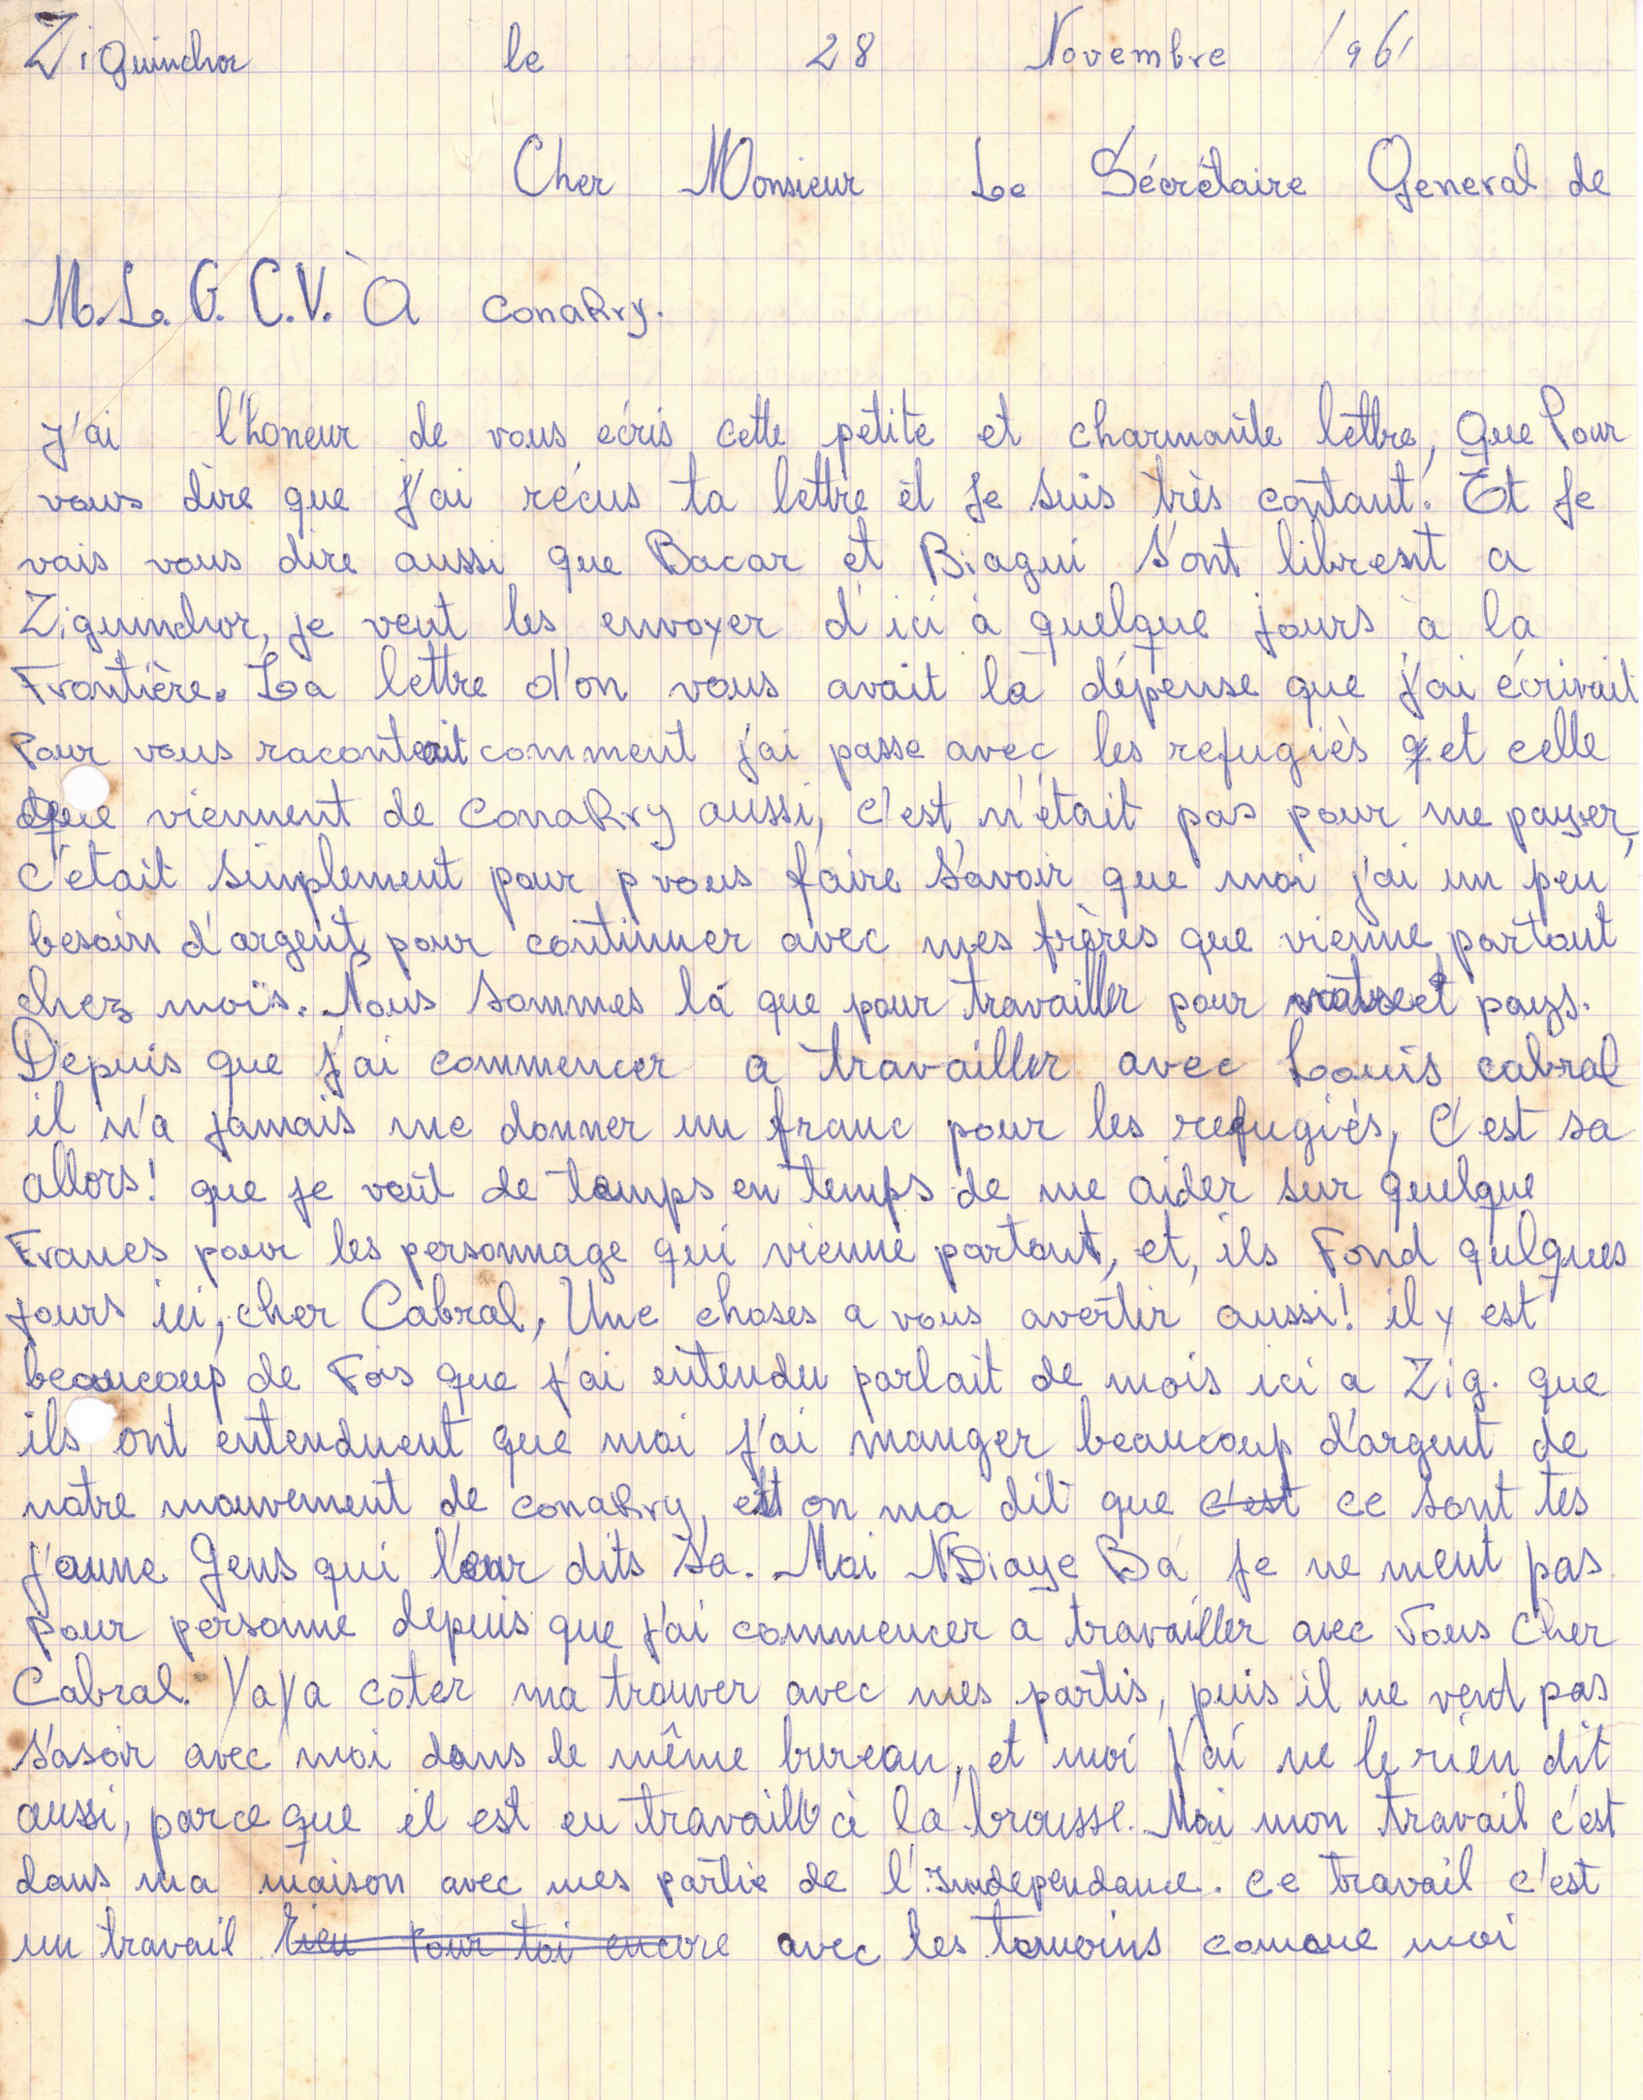 Ziguinchor le 28 Novembre 1961
Cher Monsieur Le Sécrétaire General de
M.L.G.C.V. À ConaKry.
j'ai l'honeur de vous ecris cette petite et charmante lettre, que Pour
vous dire que j'ai récus ta lettre et je suis très contant. Et je
vais vous dire aussi que Bacar et Biagui sont libresnt a
Ziguinchor, je veut les envoyer d'ici à quelque jours à la
Frontière. La lettre d'on vous avait la dépense que j'ai écrivait
Pour vous raconterait comment j'ai passe avec les refugiès et celle
que viennent de ConaKry aussi, c'est n'était pas pour me payser,
c'était simplement pour p vous faire savoir que moi j'ai un peu
besoin d'argent pour continuer avec mes frères que vienne partout
chez moïs. Nous sommes là que pour travailler pour pays.
Depuis que j'ai commencer a travailler avec Louis cabral
il n'a jamais me donner un franc pour les refugiés, C'est sa
allors! que je veut de temps en temps de me aider sur quelque
Francs pour les personnage qui vienne partout, et, ils Fond qulques
jours ici, cher Cabral, Une choses a vous avertir aussi! il y est
beaucoup de Fois que j'ai entendu parlait de mois ici a Zig. que
ils ont entenduent que moi j'ai manger beaucoup d'argent de
notre mouvement de conaKry, et on ma dit que c'est ce sont tes
jaune Gens qui leur dits sa. Moi NDiaye Ba je ne ment pas
pour personne depuis que j'ai commencer a travailler avec Vous Cher
Cabral. YaYa coter ma trouver avec mes partis, puis il ne vend pas
s'asoir avec moi dans le même bureau, et moi j'ai ne le rien dit
aussi, parce que il est en travaill à la brousse. Moi mon travail c'est
dans ma maison avec mes partie de l'independance. ce travail c'est
un travail Rien Pour toi encore avec les temoins comme moi